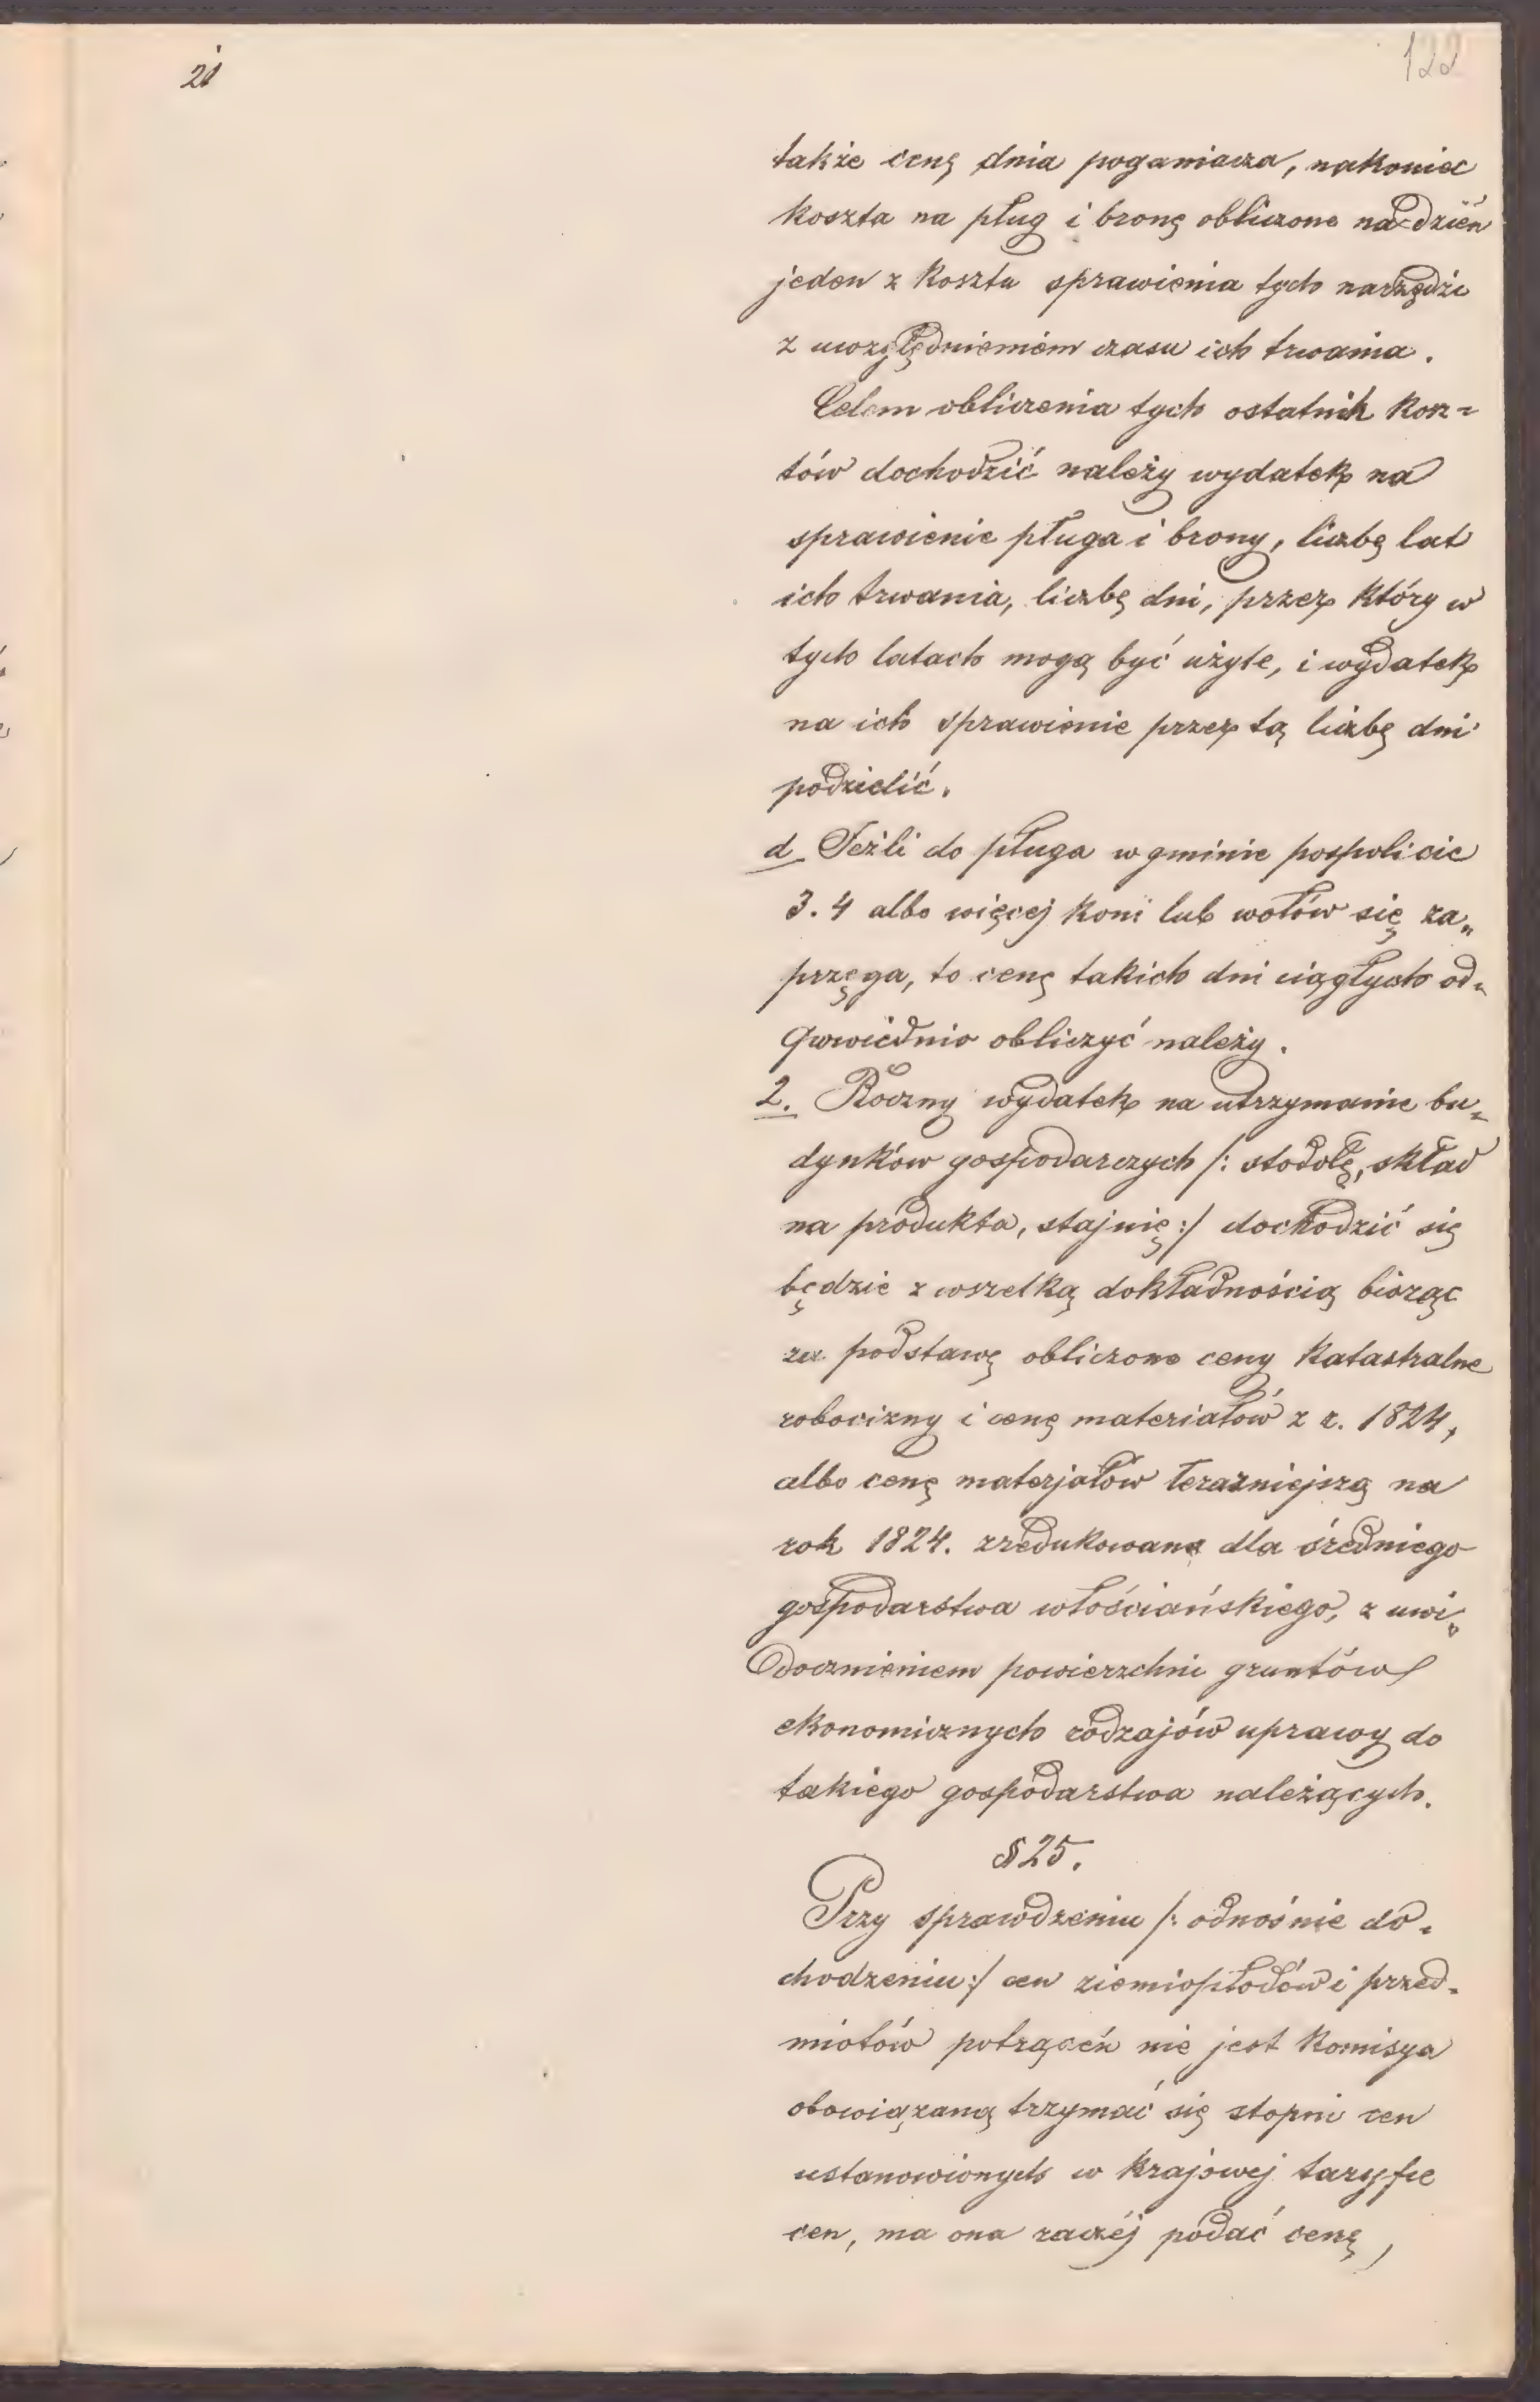 21
122
także cenę dnia poganiacza, nakoniec
koszta na pług i bronę obliczone na dzień
jeden z kosztu sprawienia tych narzędzi
z uwzględnieniem czasu ich trwania.
Celem obliczenia tych ostatnich kosz=
tów dochodzić należy wydatek na
sprawienie pługa i brony, liczbę lat
ich trwania, liczbę dni, przez który w
tych latach mogą być użyte, i wydatek
na ich sprawienie przez tą liczbę dni
podzielić.
d Jeżli do pługa w gminie pospolicie
3. 4 albo więcej koni lub wołów się za„
przęga, to cenę takich dni ciągłych od„
powiednio obliczyć należy.
2. Roczny wydatek na utrzymanie bu„
dynków gospodarczych /: stodołę, skład
na produkta, stajnię :/ dochodzić się
będzie z wszelką dokładnością biorąc
za podstawę obliczone ceny katastralne
robocizny i cenę materiałów z r. 1824,
albo cenę materjałów teraźniejszą na
rok 1824. zredukowaną dla średniego
gospodarstwa włościańskiego, z uwi„
docznieniem powierzchni gruntów
ekonomicznych rodzajów uprawy do
takiego gospodarstwa należących.
§ 25.
Przy sprawdzeniu /: odnośnie do„
chodzeniu :/ cen ziemiopłodów i przed„
miotów potrąceń nie jest Komisya
obowiązaną trzymać się stopni cen
ustanowionych w krajowej taryfie
cen, ma ona raczéj podać cenę,